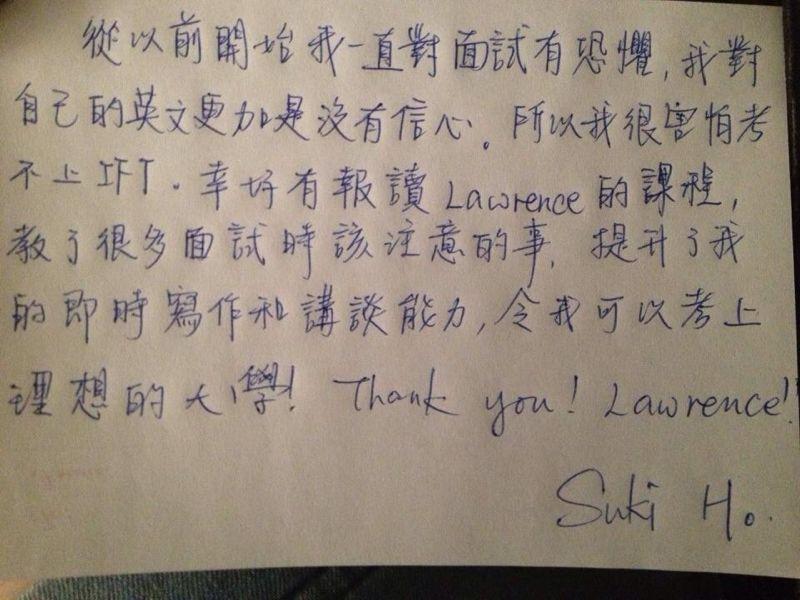 從以前開始我一直對面試有恐懼，我對
自己的英文更加是沒有信心。所以我很害怕考
不上IFT。幸好有報讀Lawrence的課程，
教了很多面試時該注意的事，提升了我
的即時寫作和講談能力，令我可以考上
理想的大學！Thank you! Lawrence!!
Suki Ho.